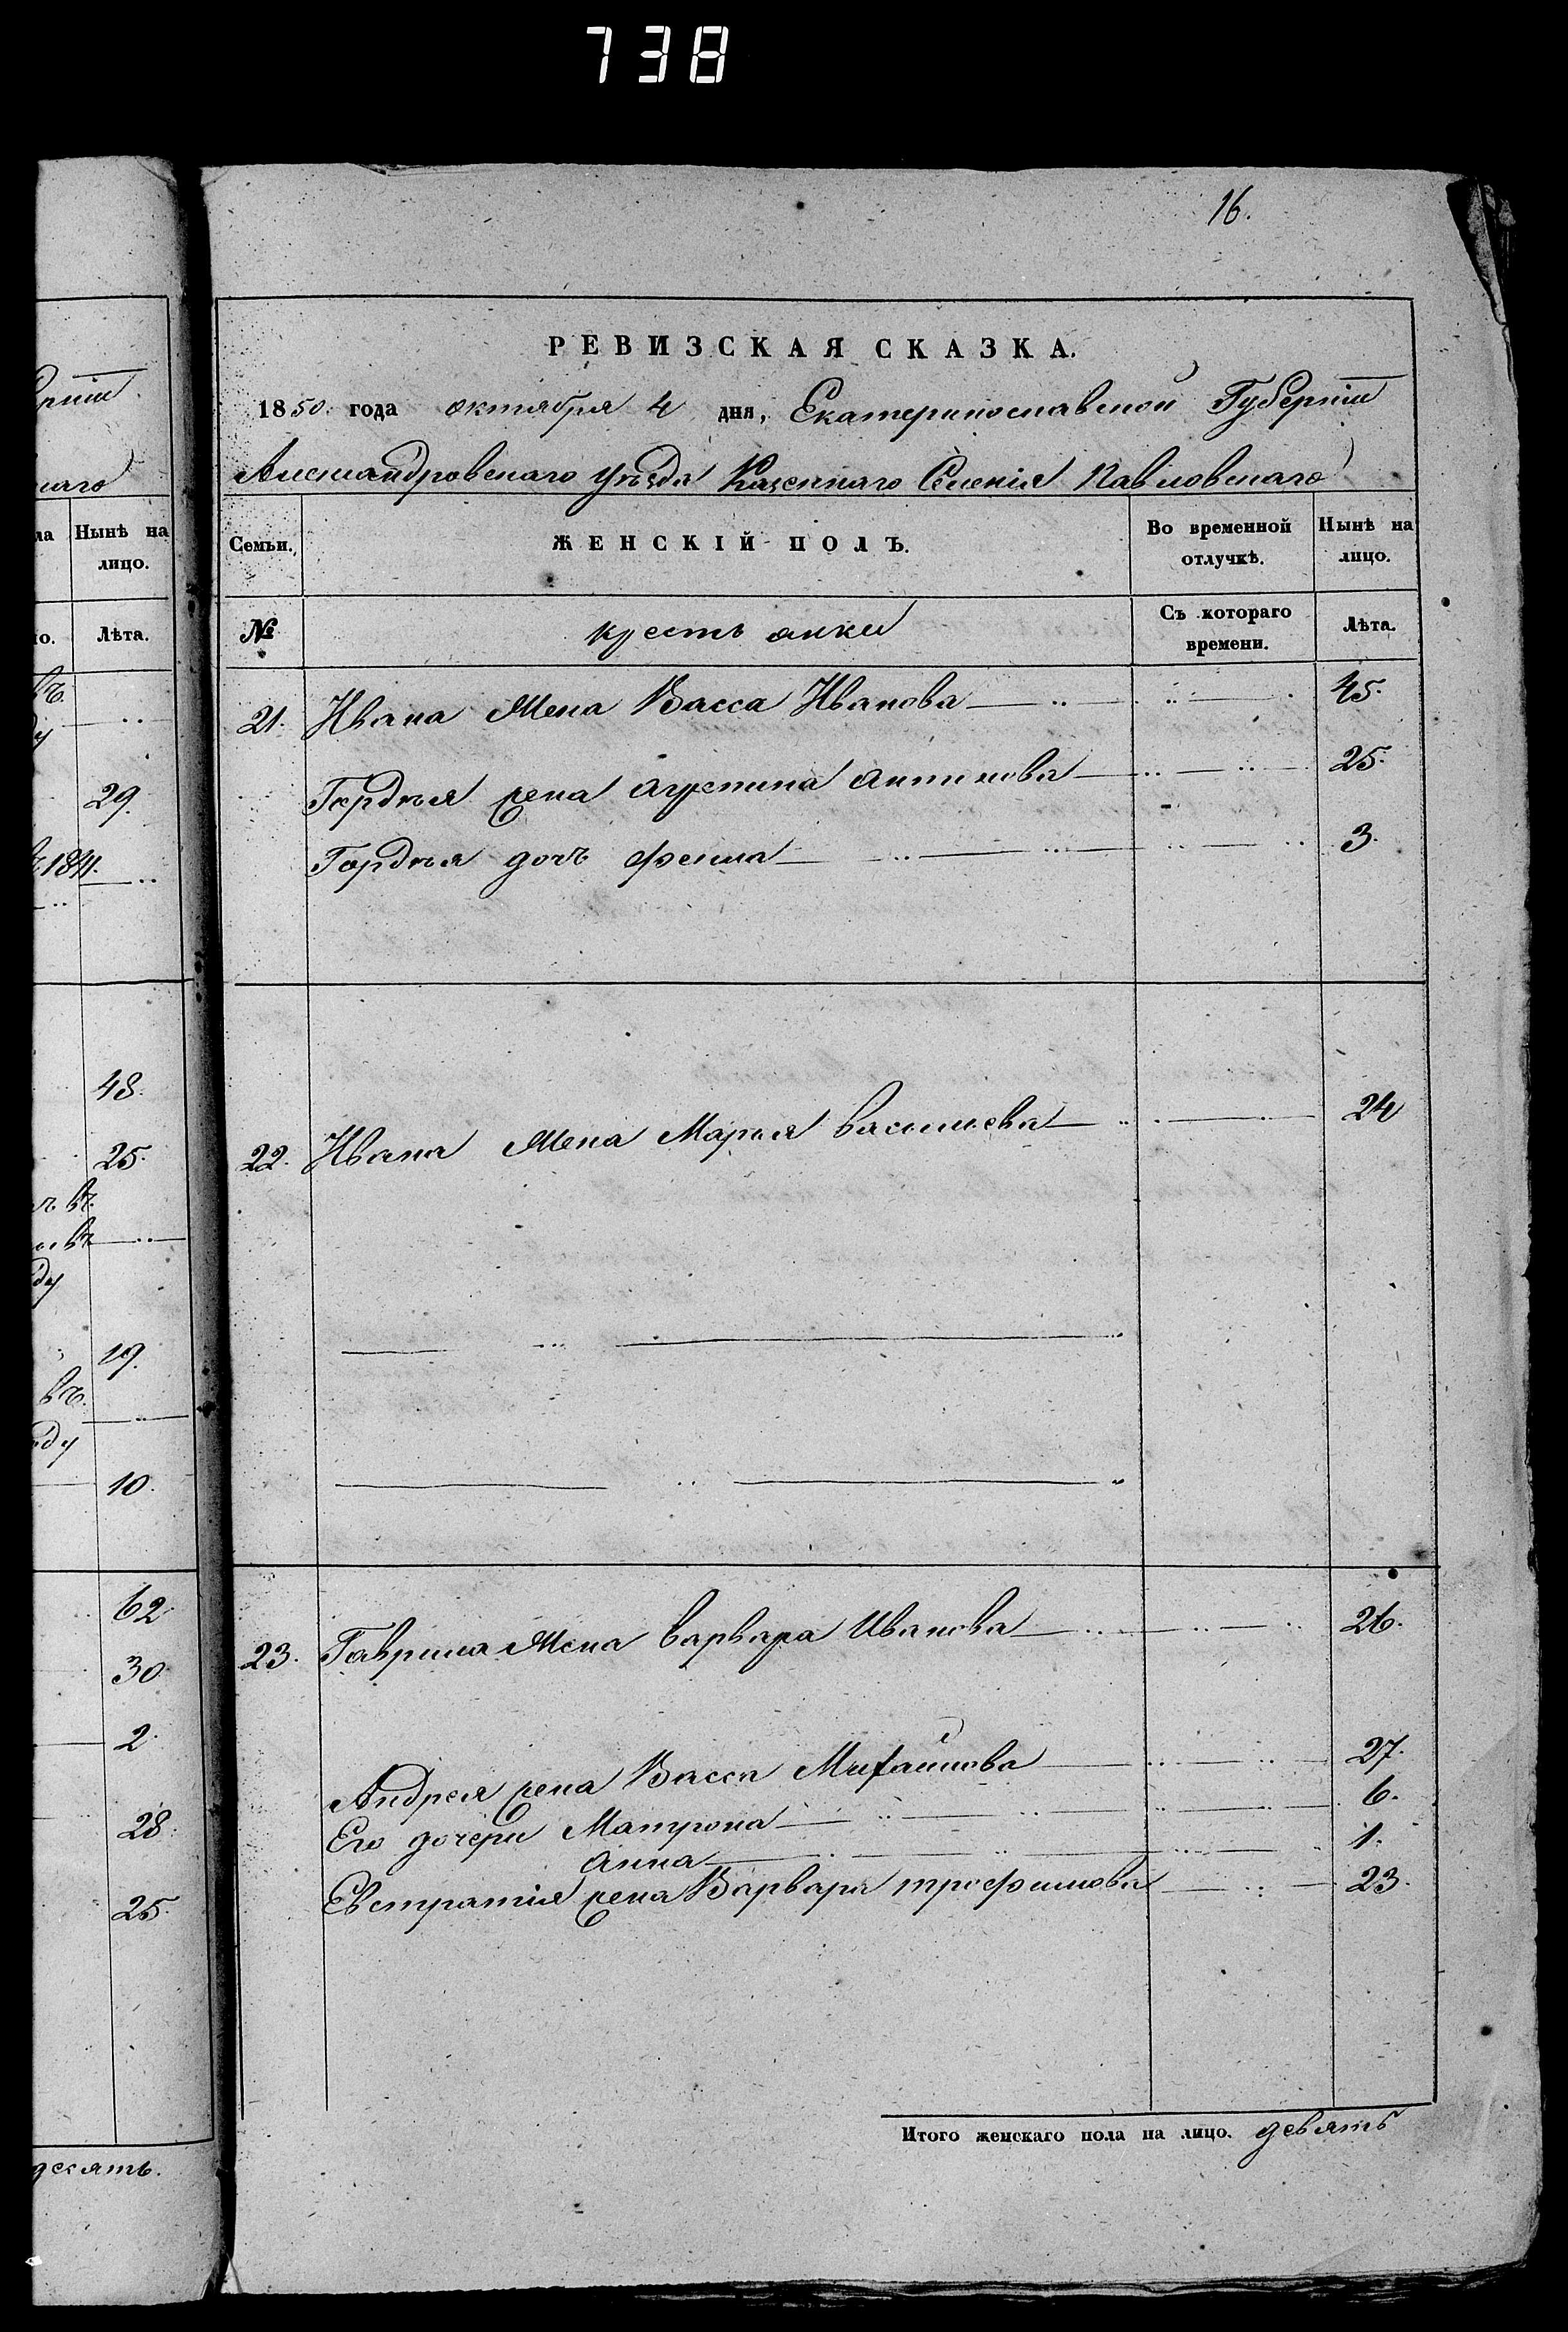 738
16.
РЕВИЗСКАЯ СКАЗКА.
1850 года октября 4 дня, Екатеринославской Губерніи
Александровскаго уѣзда Казеннаго Селенія Павловскаго
Семьи. ЖЕНСКІЙ ПОЛЪ. Во временной отлучкѣ. Нынѣ на лицо.
№ крестьянки Съ котораго времени. Лѣта.
21. Ивана Жена Васса Иванова 45.
Гордѣя жена Агрепина Антипова 25.
Гордѣя дочь Фекла 3.
22. Ивана Жена Марья Васильева 24
23. Гаврила Жена Варвара Иванова 26.
Андрея жена Васса Михайлова 27.
Его дочери Матрона 6.
Анна 1.
Евстратія жена Варвара Трофимова 23.
Итого женскаго пола на лицо. девять
ерніи
наго
Нынѣ на
лицо.
Лѣта.
29.
1841.
48.
25.
19.
10.
62
30
2.
28.
25.
десять.